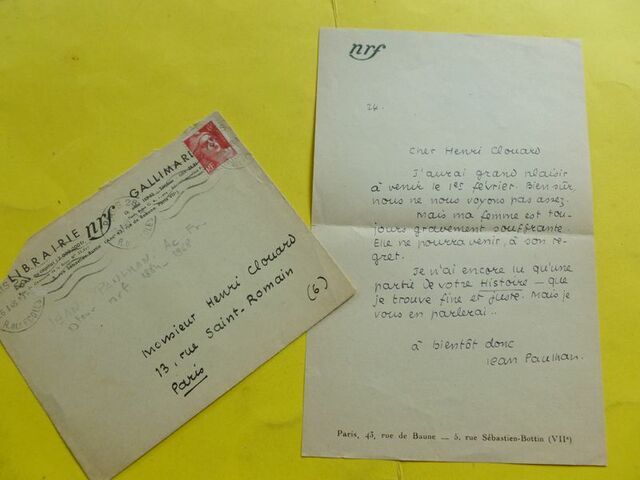 nrf
24.
Cher Henri Clouard
J'aurai grand plaisir
à venir le 1er février. Bien sûr,
nous ne nous voyons pas assez.
Mais ma femme est tou-
jours gravement souffrante.
Elle ne pourra venir, à son re-
gret.
Je n'ai encore lu qu'une
partie de votre Histoire — que
je trouve fine et juste. Mais je
vous en parlerai..
à bientôt donc
Jean Paulhan.
Paris, 43, rue de Baune — 5, rue Sébastien-Bottin (VIIe)
LIBRAIRIE nrf GALLIMARD
PAULHAN, Ac. Fr.
nrf
Monsieur Henri Clouard
13, rue Saint-Romain
Paris (6)